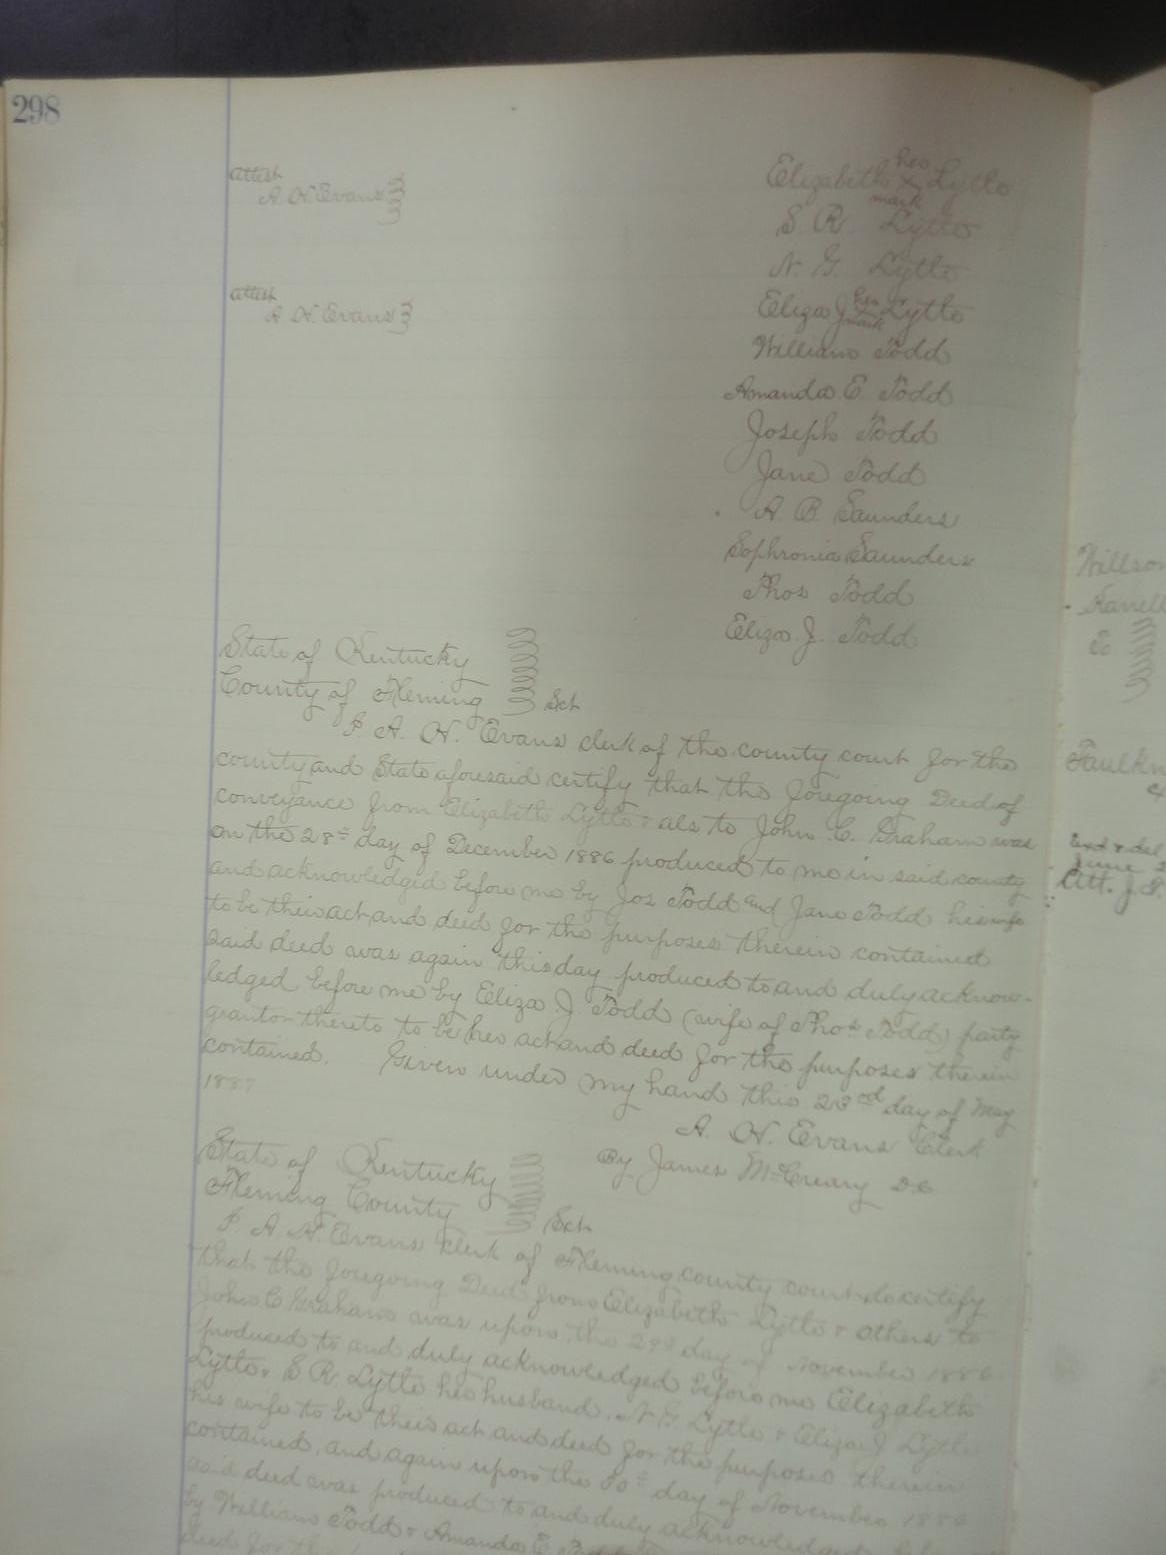 298
Attest
A. H. Evans
Elizabeth her x mark Lytle
S. R. Lytle
N. G. Lytle
Attest
A. H. Evans
Eliza J her x mark Lytle
William Todd
Amanda E. Todd
Joseph Todd
Jane Todd
A. B. Saunders
Sophronia Saunders
Thos Todd
Eliza J. Todd
State of Kentucky
County of Fleming Sct
I A. H. Evans clerk of the county court for the
county and State aforesaid certify that the foregoing Deed of
conveyance from Elizabeth Lytle & als to John C. Graham was
on the 28th day of December 1886 produced to me in said county
and acknowledged before me by Jos Todd and Jane Todd his wife
to be their act and deed for the purposes therein contained
said deed was again this day produced to and duly acknow-
ledged before me by Eliza J. Todd (wife of Thos Todd) party
grantor thereto to be her act and deed for the purposes therein
contained. Given under my hand this 23rd day of May
1887
A. H. Evans Clerk
By James McCreary D.C.
State of Kentucky
Fleming County Sct
I. A. H. Evans clerk of Fleming county court do certify
that the foregoing Deed from Elizabeth Lytle & others to
John C Graham was upon the 29th day of November 1886
produced to and duly acknowledged before me Elizabeth
Lytle & S R. Lytle her husband, N G Lytle & Eliza J Lytle
his wife to be their act and deed for the purposes therein
contained, and again upon the 30th day of November 1886
said deed was produced to and duly acknowledged
by William Todd & Amanda E. Todd
deed for the
Willson
Faulkn
June
Att. J.